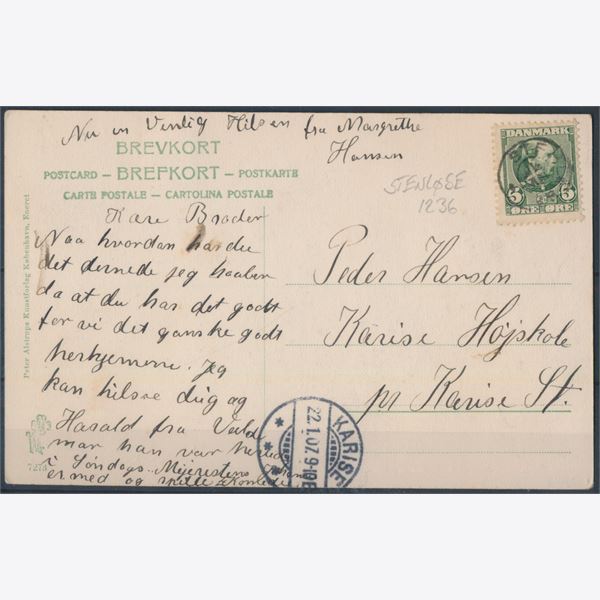 Nu en Venlig Hilsen fra Margrethe
Hansen
BREVKORT
POSTCARD – BREFKORT – POSTKARTE
CARTE POSTALE – CARTOLINA POSTALE
STENLØSE
1236
DANMARK
5 5
ØRE ØRE
Kære Broder
Naa hvordan har du
det dernede jeg haaber
da at du har det godt
for vi det ganske godt
herhjemme. Jeg
kan hilsve dig og
Harald fra Vald
mar han var
i Søndags. Mejeristens
er med og spille
Peder Hansen
Karise Højskole
pr Karise St.
KARISE
22.1.07. 9-10E
Peter Alstrups Kunstforlag København, Eneret
7273